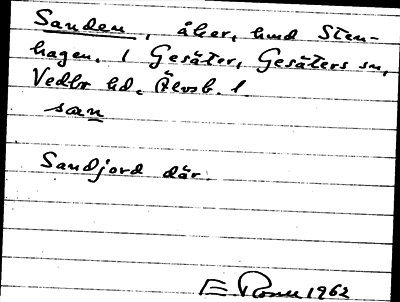 Sanden, åker, hmd Sten-
hagen. 1 Gesäter, Gesäters sn,
Vedbo hd. Älvsb. l.
san
Sandjord där.
E 1962